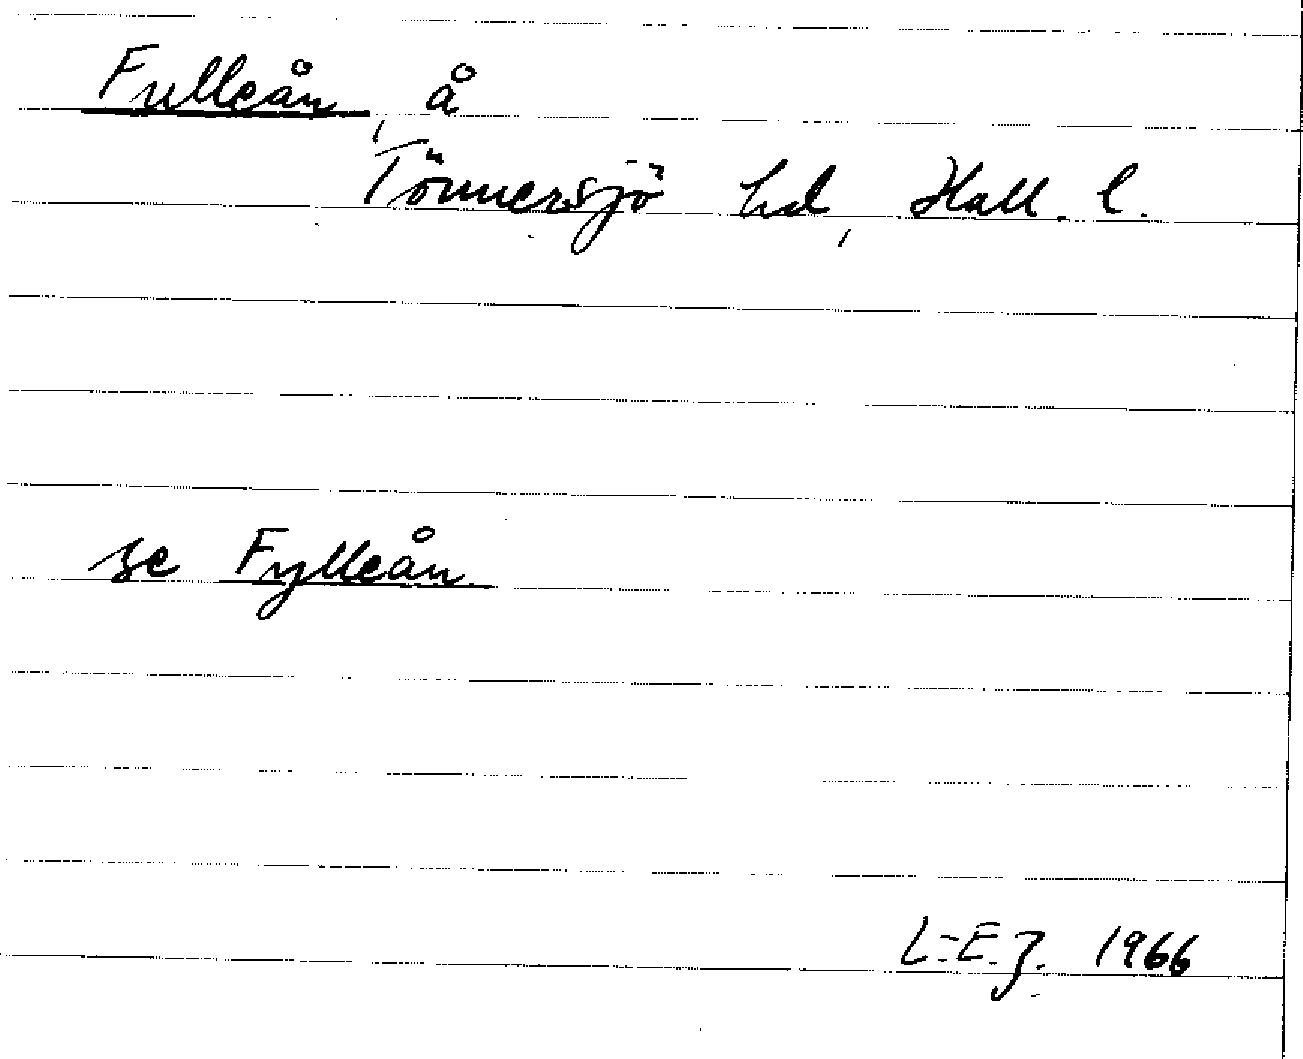 Fulleån, å
Tönnersjö hd, Hall. l.
se Fylleån
L-E. J. 1966